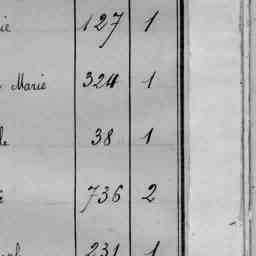 ie 127 1
Marie 324 1
le 38 1
736 2
231 1